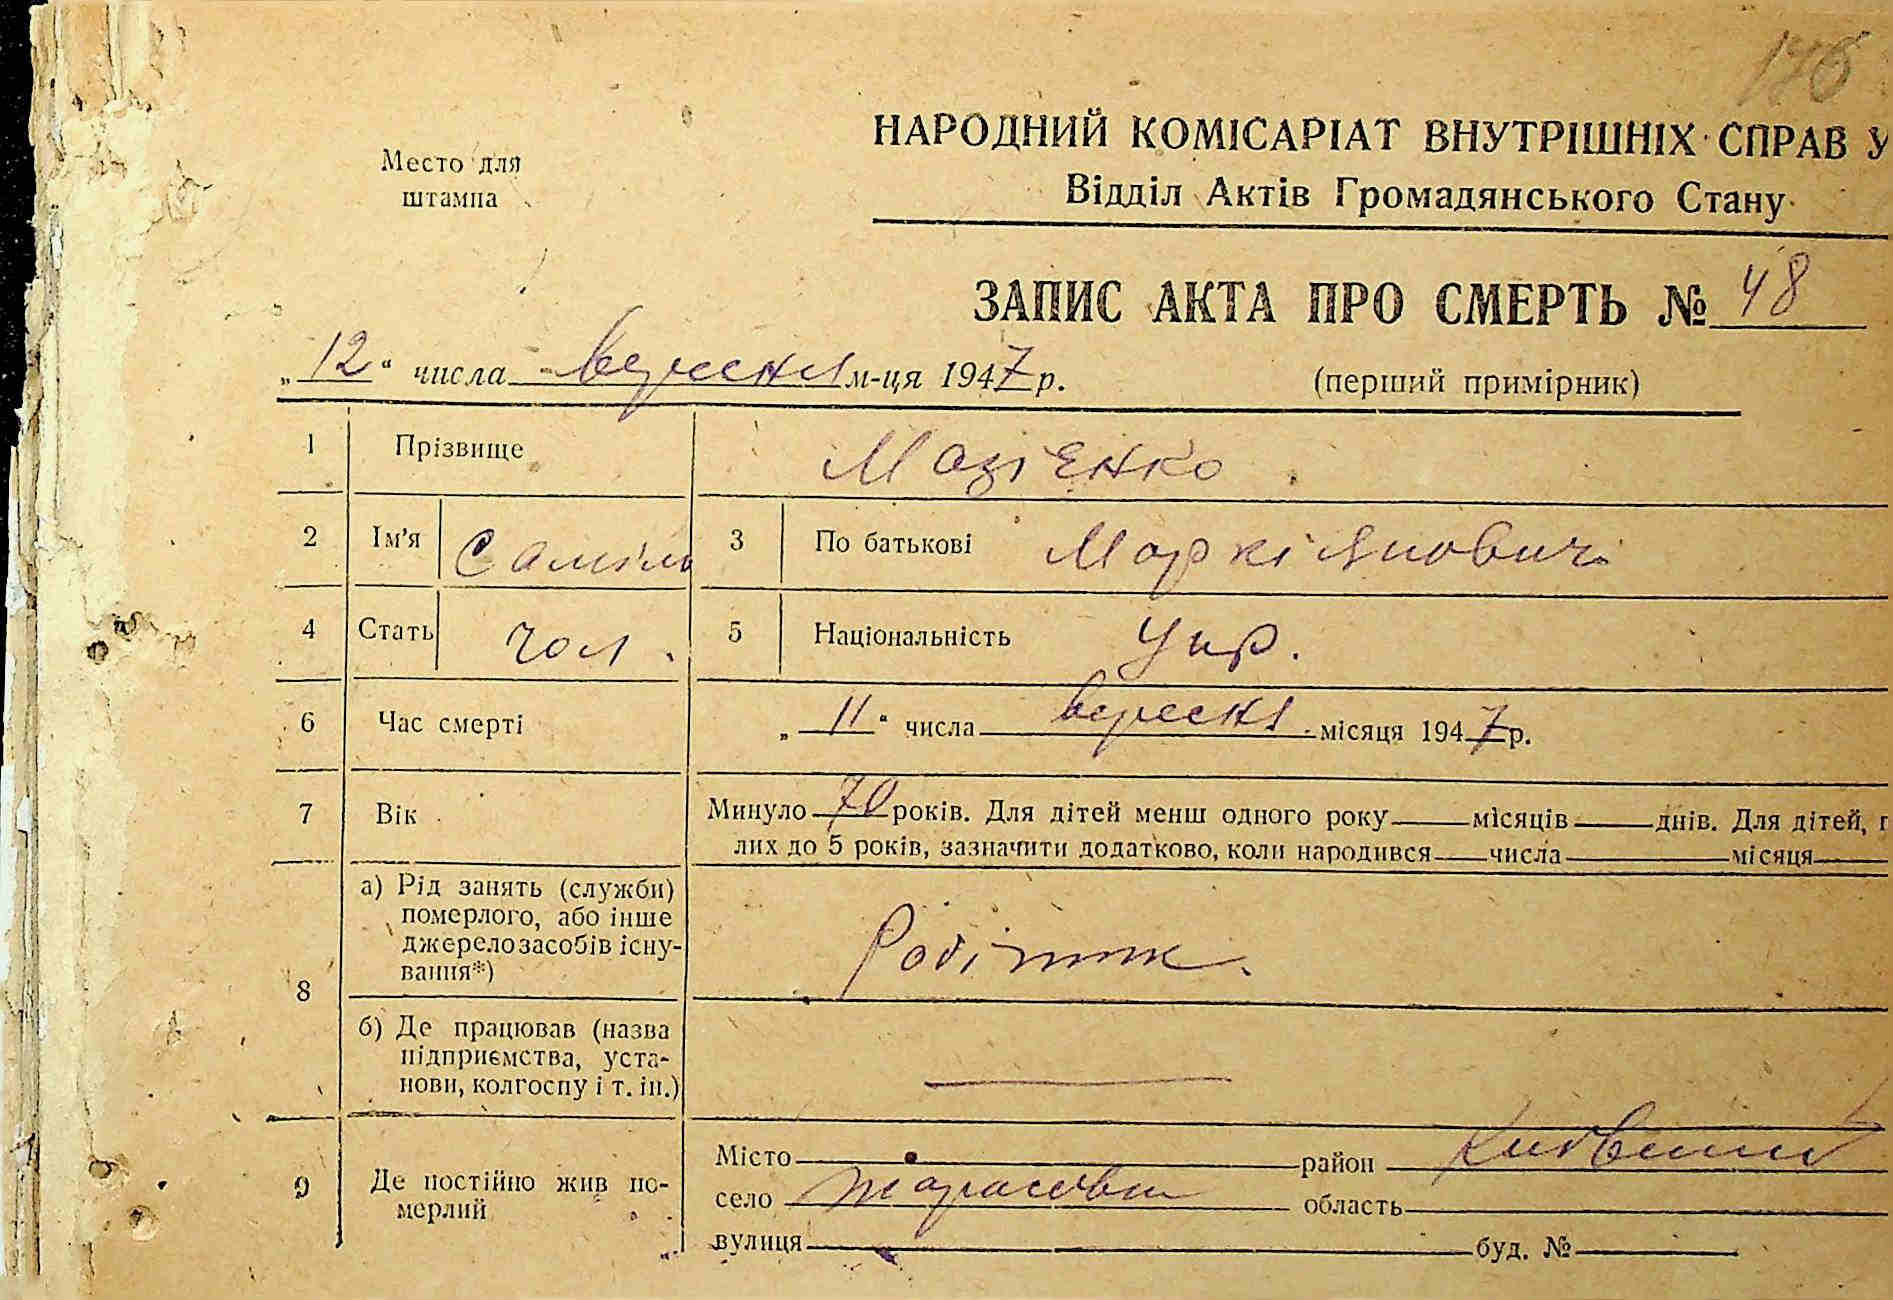 176
Место для
штампа
НАРОДНИЙ КОМІСАРІАТ ВНУТРІШНІХ СПРАВ У
Відділ Актів Громадянського Стану
ЗАПИС АКТА ПРО СМЕРТЬ № 48
„12“ числа вересня м-ця 1947 р.
(перший примірник)
1 Прізвище Мазієнко
2 Ім'я Самійло 3 По батькові Маркіянович
4 Стать чол. 5 Національність Укр.
6 Час смерті „11“ числа вересня місяця 1947 р.
7 Вік Минуло 70 років. Для дітей менш одного року місяців днів. Для дітей, п
лих до 5 років, зазначити додатково, коли народився числа місяця
8 а) Рід занять (служби)
померлого, або інше
джерело засобів існу-
вання*)
Робітник.
б) Де працював (назва
підприємства, уста-
нови, колгоспу і т. ін.)
9 Де постійно жив по-
мерлий
Місто район
село Тарасовка область
вулиця буд. №